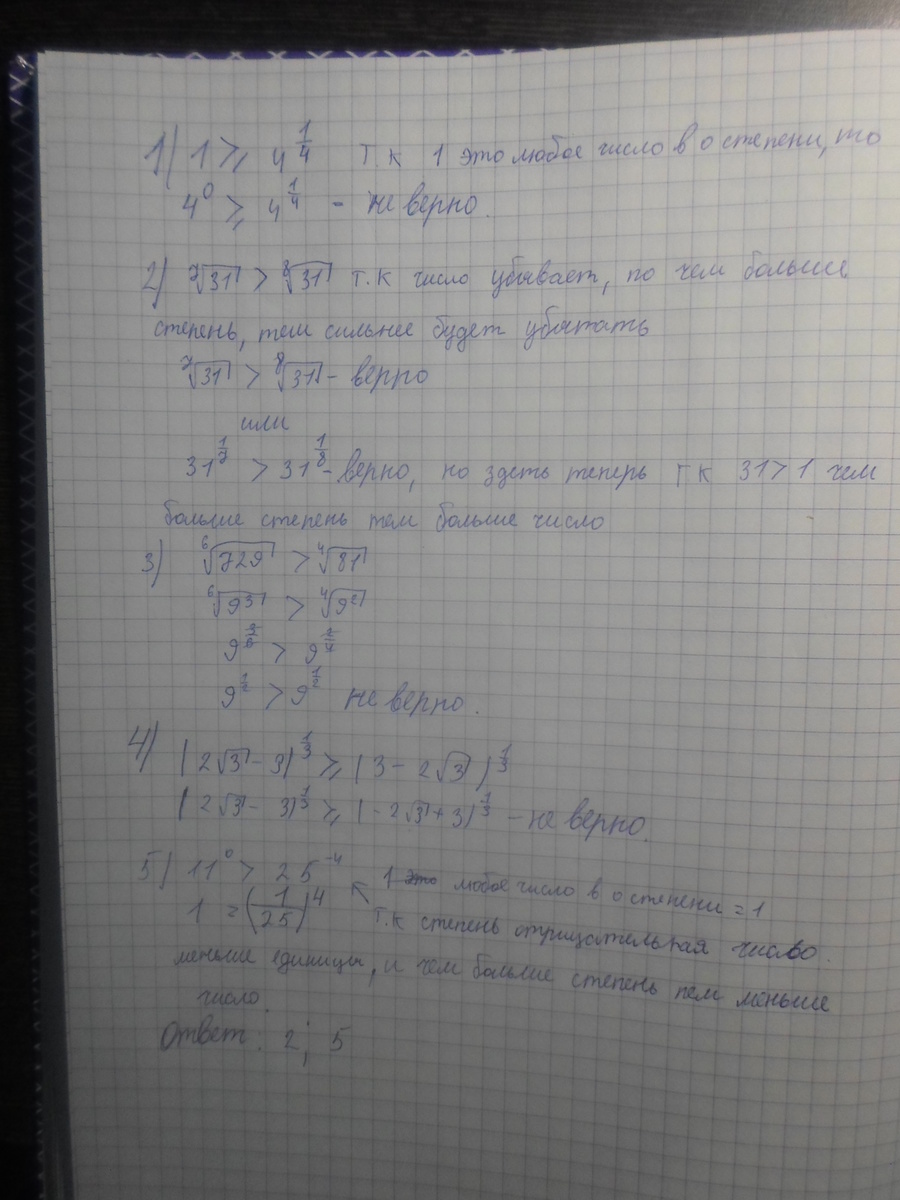 1) 1 ⩾ 4^{1/4} т.к 1 это любое число в 0 степени, то
4^0 ⩾ 4^{1/4} - не верно.
2) ⁷√31 > ⁸√31 т.к число убывает, но чем больше
степень, тем сильнее будет убывать
⁷√31 > ⁸√31 - верно
или
31^{1/7} > 31^{1/8} - верно, но здесь теперь т к 31>1 чем
больше степень тем больше число
3) ⁶√729 > ⁴√81
⁶√9³ > ⁴√9²
9^{3/6} > 9^{2/4}
9^{1/2} > 9^{1/2} не верно.
4) (2√3 - 3)^{1/3} ⩾ (3 - 2√3)^{1/3}
(2√3 - 3)^{1/3} ⩾ (-2√3 + 3)^{1/3} - не верно.
5) 11^0 > 25^{-4} ↖ 1 любое число в 0 степени = 1
1 = (1/25)^4 т.к степень отрицательная число
меньше единицы, и чем больше степень тем меньше
число.
Ответ: 2; 5